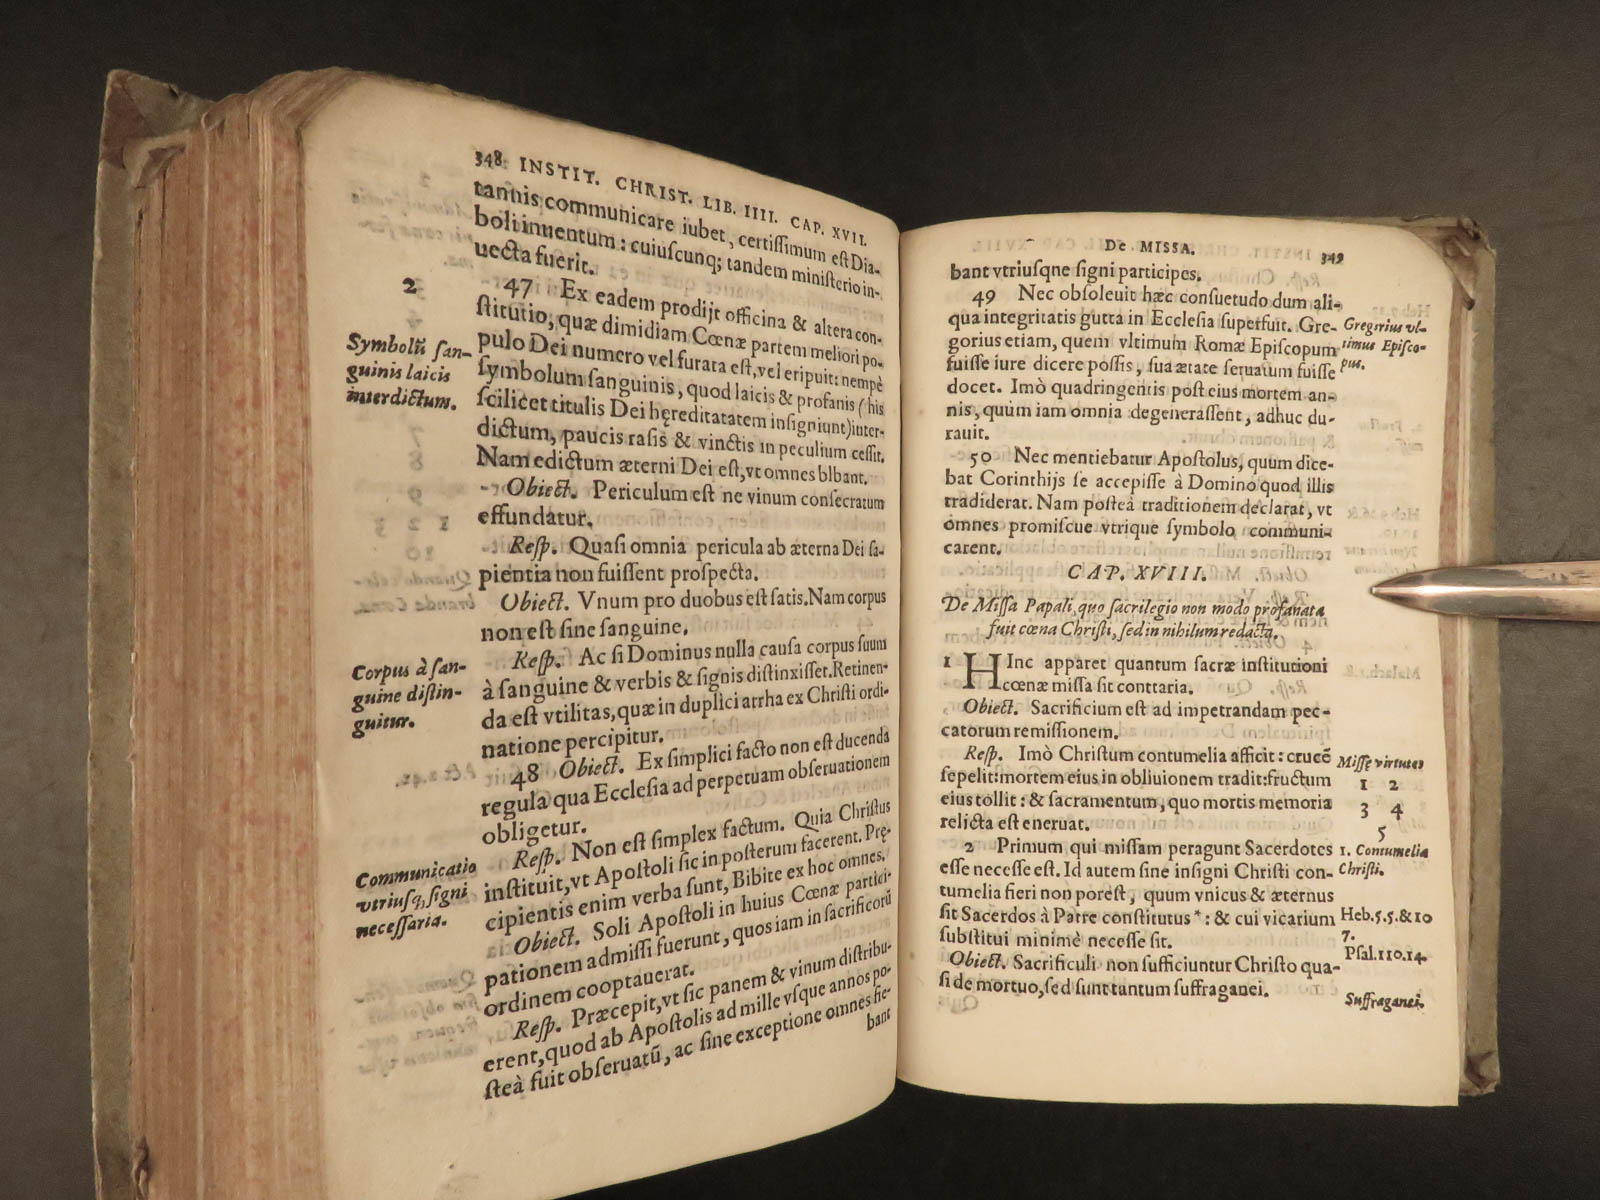 348 INSTIT. CHRIST. LIB. IIII. CAP. XVII.
tannis communicare iubet, certiſſimum eſt Dia-
boli inuentum : cuiuſcunq; tandem miniſterio in-
uecta fuerit.
2
47 Ex eadem prodijt officina & altera con-
ſtitutio, quæ dimidiam Cœnæ partem meliori po-
pulo Dei numero vel furata eſt, vel eripuit: nempè
ſymbolum ſanguinis, quod laicis & profanis (his
ſcilicet titulis Dei hęreditatatem inſigniunt) inter-
dictum, paucis raſis & vinctis in peculium ceſſit.
Nam edictum æterni Dei eſt, vt omnes blbant.
Symbolū ſan-
guinis laicis
interdictum.
Obiect. Periculum eſt ne vinum conſecratum
effundatur.
Reſp. Quaſi omnia pericula ab æterna Dei ſa-
pientia non fuiſſent proſpecta.
Obiect. Vnum pro duobus eſt ſatis. Nam corpus
non eſt ſine ſanguine.
Reſp. Ac ſi Dominus nulla cauſa corpus ſuum
à ſanguine & verbis & ſignis diſtinxiſſet. Retinen-
da eſt vtilitas, quæ in duplici arrha ex Chriſti ordi-
natione percipitur.
Corpus à ſan-
guine diſtin-
guitur.
48 Obiect. Ex ſimplici facto non eſt ducenda
regula qua Eccleſia ad perpetuam obſeruationem
obligetur.
Reſp. Non eſt ſimplex factum. Quia Chriſtus
inſtituit, vt Apoſtoli ſic in poſterum facerent. Prę-
cipientis enim verba ſunt, Bibite ex hoc omnes.
Communicatio
vtriuſq; ſigni
neceſſaria.
Obiect. Soli Apoſtoli in huius Cœnæ partici-
pationem admiſſi fuerunt, quos iam in ſacrificorū
ordinem cooptauerat.
Reſp. Præcepit, vt ſic panem & vinum diſtribu-
erent, quod ab Apoſtolis ad mille vſque annos po-
ſteà fuit obſeruatū, ac ſine exceptione omnes fie-
bant
De MISSA. 349
bant vtriuſqne ſigni participes.
49 Nec obſoleuit hæc conſuetudo dum ali-
qua integritatis gutta in Eccleſia ſuperfuit. Gre-
gorius etiam, quem vltimum Romæ Epiſcopum
fuiſſe iure dicere poſſis, ſua ætate ſeruatum fuiſſe
docet. Imò quadringentis poſt eius mortem an-
nis, quum iam omnia degeneraſſent, adhuc du-
rauit.
Gregorius vl-
timus Epiſco-
pus.
50 Nec mentiebatur Apoſtolus, quum dice-
bat Corinthijs ſe accepiſſe à Domino quod illis
tradiderat. Nam poſteà traditionem declarat, vt
omnes promiſcue vtrique ſymbolo communi-
carent.
CAP. XVIII.
De Miſſa Papali, quo ſacrilegio non modo profanata
fuit cœna Chriſti, ſed in nihilum redacta.
1 HInc apparet quantum ſacræ inſtitutioni
cœnæ miſſa ſit conttaria.
Obiect. Sacrificium eſt ad impetrandam pec-
catorum remiſſionem.
Reſp. Imò Chriſtum contumelia afficit: crucē
ſepelit: mortem eius in obliuionem tradit: fructum
eius tollit: & ſacramentum, quo mortis memoria
relicta eſt eneruat.
Miſſe virtutes
1 2
3 4
5
2 Primum qui miſſam peragunt Sacerdotes
eſſe neceſſe eſt. Id autem ſine inſigni Chriſti con-
tumelia fieri non poreſt, quum vnicus & æternus
ſit Sacerdos à Patre conſtitutus * : & cui vicarium
ſubſtitui minimè neceſſe ſit.
1. Contumelia
Chriſti.
Heb. 5.5. & 10
7.
Pſal. 110.14.
Obiect. Sacrificuli non ſufficiuntur Chriſto qua-
ſi de mortuo, ſed ſunt tantum ſuffraganei.
Suffraganei.